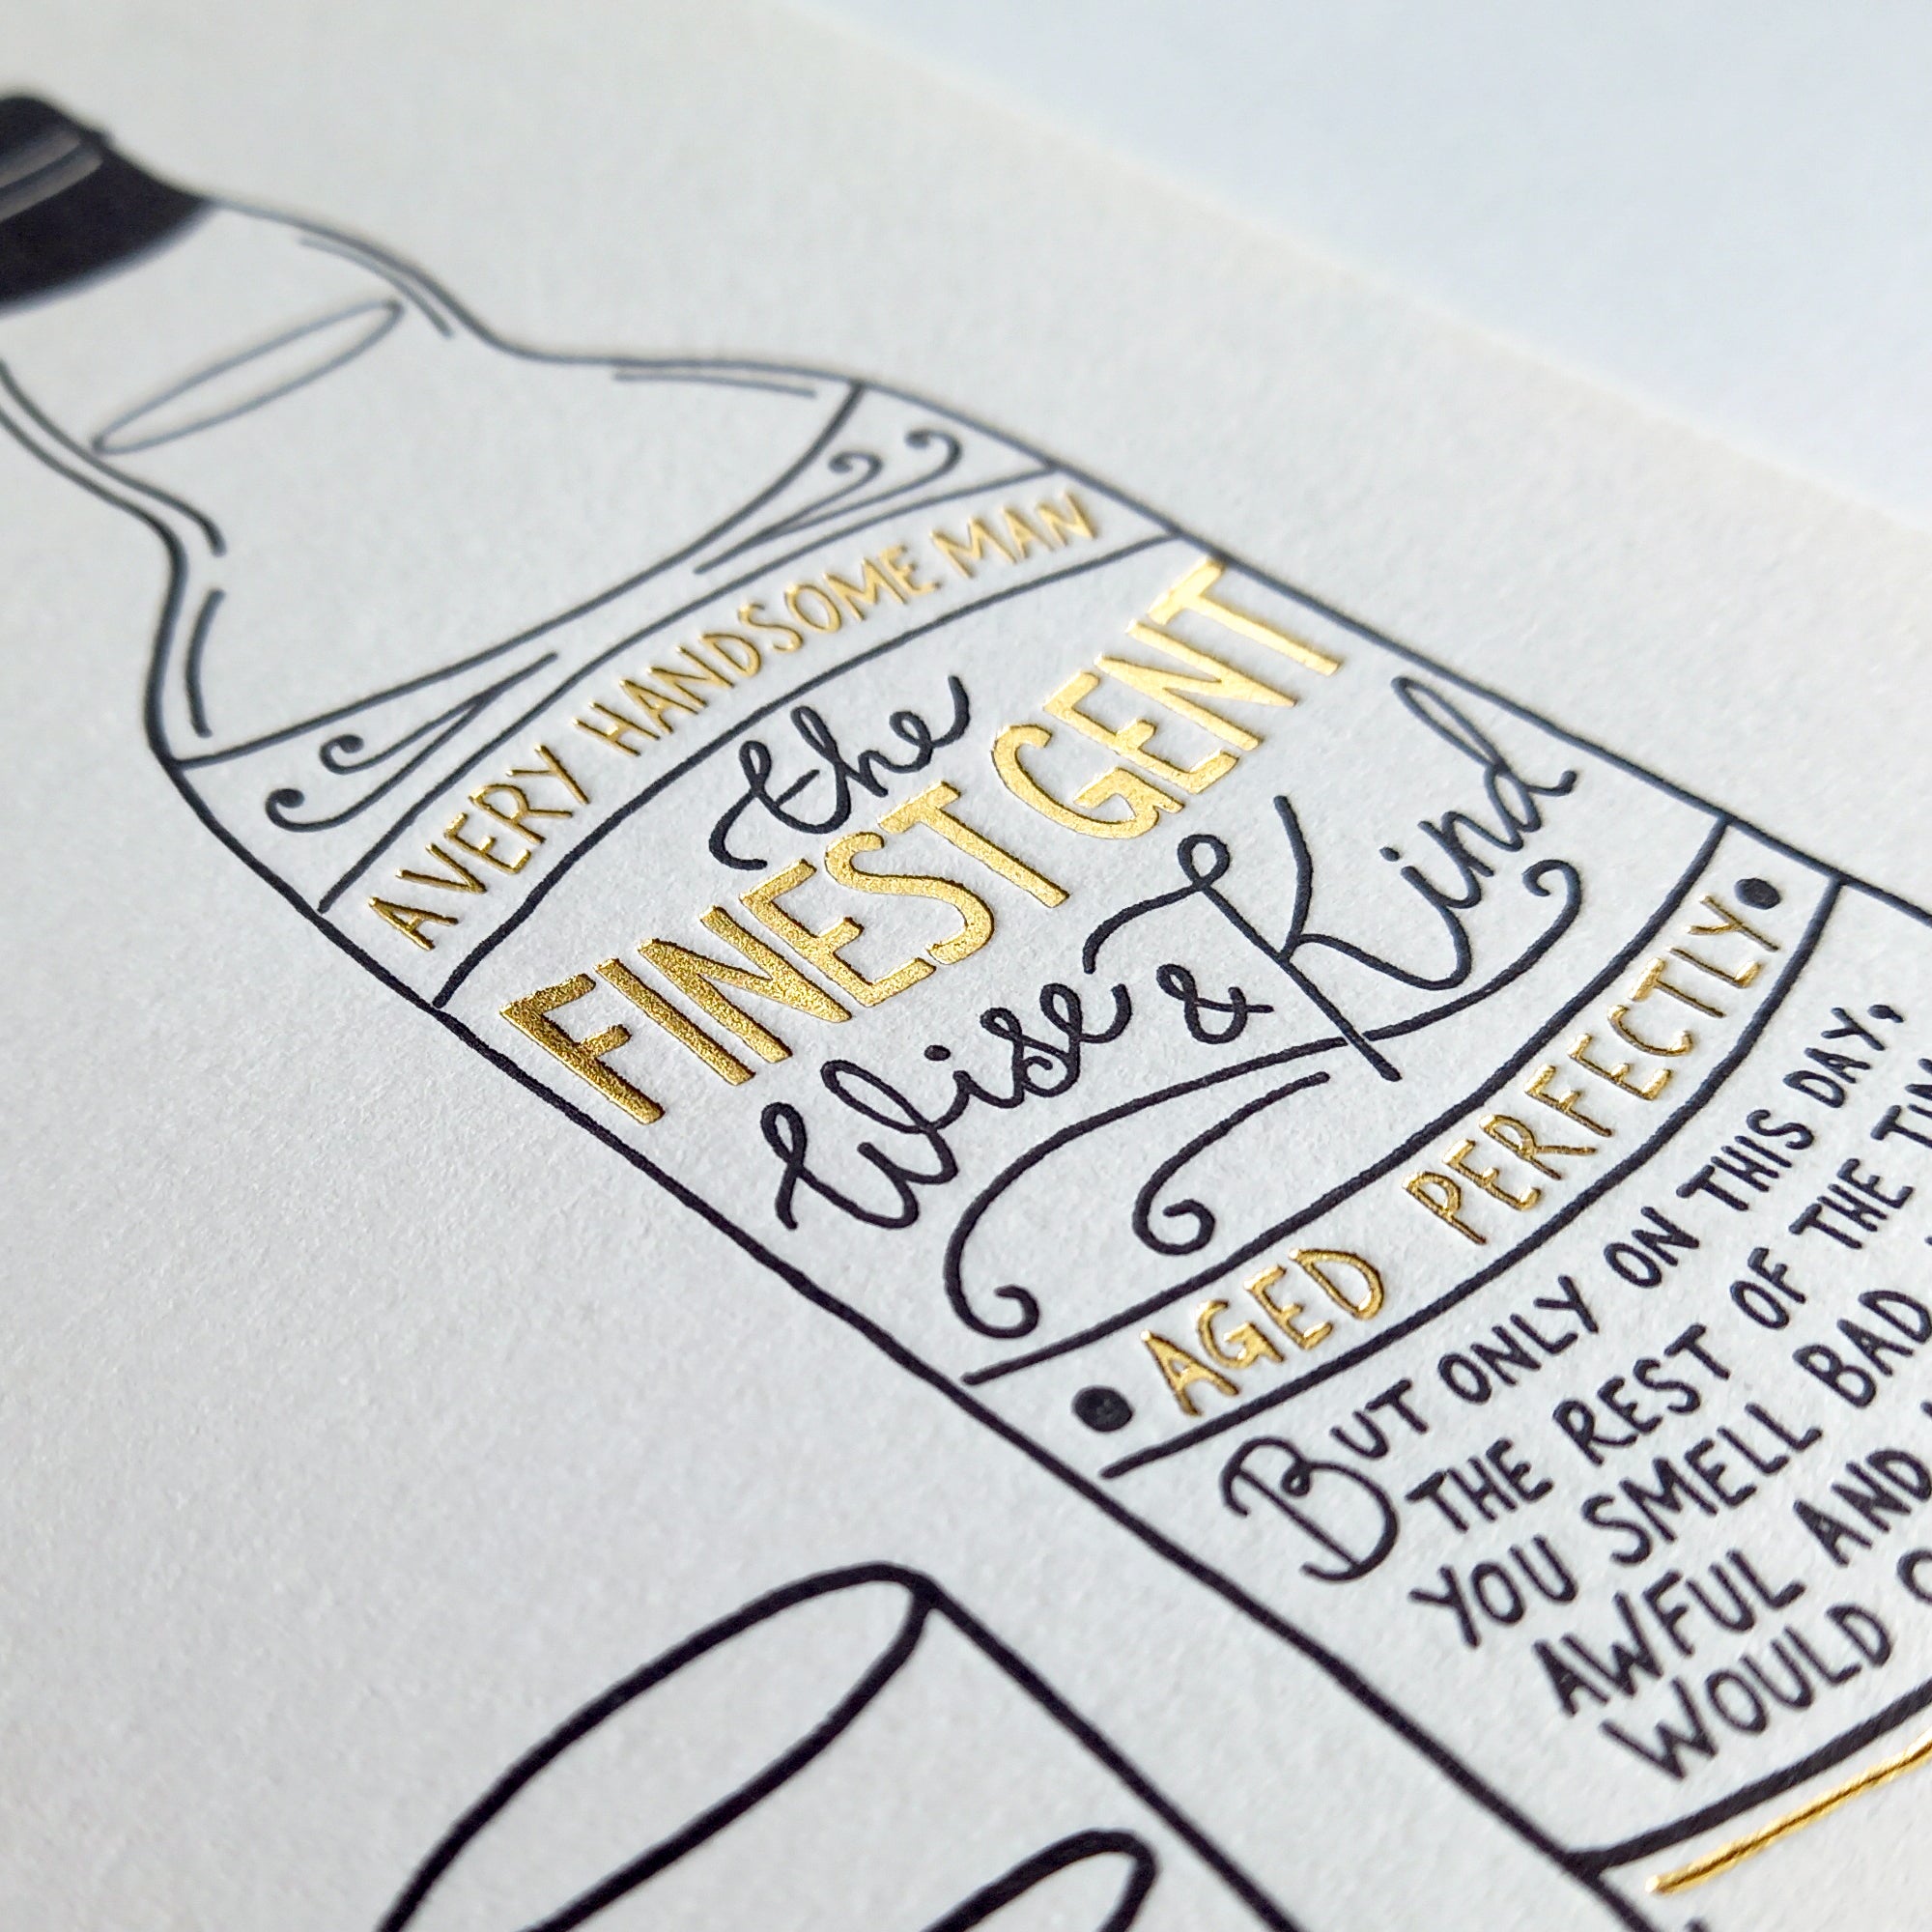 A VERY HANDSOME MAN
the
FINEST GENT
Wise & Kind
AGED PERFECTLY
BUT ONLY ON THIS DAY,
THE REST OF THE
YOU SMELL BAD
AWFUL AND
WOULD